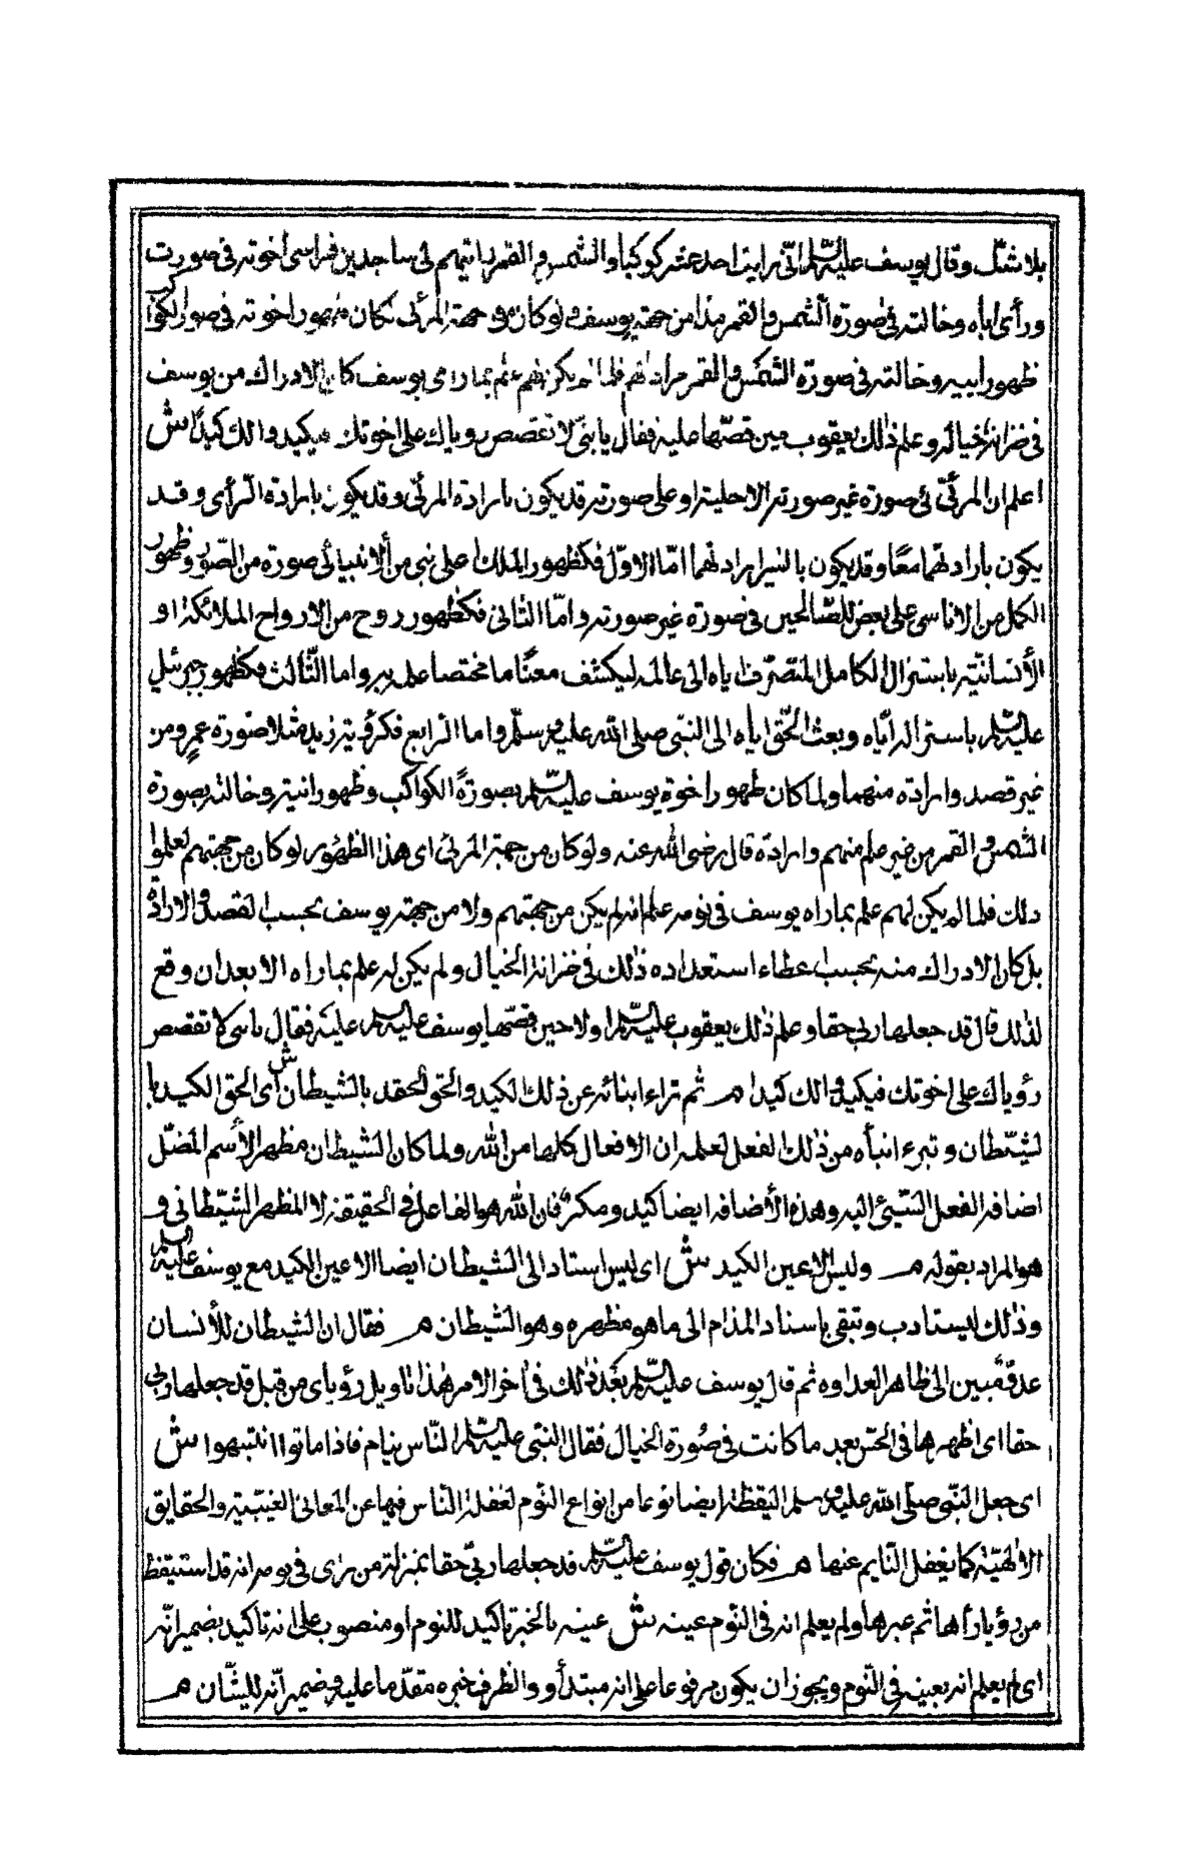 بلا شك وقال يوسف عليه السلم انى رايت احد عشر كوكبا والشمس والقمر رايتهم لى ساجدين فراى اخوته فى صورت
ورأى اباه وخالته فى صورة الشمس والقمر هذا من جهة يوسف ولو كان من جهة المرئى لكان ظهور اخوته فى صور الكواكب
ظهور ابيه وخالته فى صورة الشمس والقمر مرادا لهم فلما لم يكن لهم علم بما راه يوسف كان الادراك من يوسف
فى خزانة خياله وعلم ذلك يعقوب حين قصها عليه فقال يا بنى لا تقصص روياك على اخوتك فيكيدوا لك كيدا ش
اعلم ان المرئى فى صورة غير صورته الاصلية او على صورته قد يكون بارادة المرئى وقد يكون بارادة الرأى وقد
يكون بارادتهما معا وقد يكون بالغير ارادتهما امّا الاوّل فكظهور الملك على نبى من الانبيا فى صورة من الصّور وظهور
الكمل من الاناسى على بعض الصّالحين فى صورة غير صورته وامّا الثانى فكظهور روح من الارواح الملائكة او
الأنسانيّة باستنزال الكامل المتصرّف اياه الى عالمه ليكشف معنًا ما مختصا علمه به واما الثّالث فكظهور جبرئيل
عليه السلم باستنزاله اياه وبعث الحقّ اياه الى النبى صلى الله عليه وسلّم واما الرابع فكرؤية زيد مثلا صورة عمرٍو من
غير قصد وارادة منهما ولما كان ظهور اخوة يوسف عليه السلم بصورة الكواكب وظهور ابيه وخالته بصورة
الشمس والقمر من غير علم منهم وارادة قال رضى الله عنه ولو كان من جهة المرئى اى هذا الظهور لو كان من جهتهم لعلموا
ذلك فلما لم يكن لهم علم بما راه يوسف فى نومه علم انه لم يكن من جهتهم ولا من جهة يوسف بحسب القصد والارادة
بل كان الادراك منه بحسب اعطاء استعداده ذلك فى خزانة الخيال ولم يكن له علم بما راه الا بعد ان وقع
لذلك قال قد جعلها ربى حقا وعلم ذلك يعقوب عليه السلم اولا حين قصّها يوسف عليه السلم عليه فقال يا بنى لا تقصص
رؤياك على اخوتك فيكيدوا لك كيدا م ثم براء ابنائه عن ذلك الكيد والحق الحقه بالشيطان ش اى الحق الكيد با
لشيّطان وتبرء ابنأه من ذلك الفعل لعلمه ان الافعال كلها من الله ولما كان الشيطان مظهر الأسم المضلّ
اضافه الفعل السّيئ اليه وهذه الأضافه ايضا كيد ومكر فان الله هو الفاعل فى الحقيقة لا المظهر الشيّطانى و
هو المراد بقوله م وليس الا عين الكيد ش اى ليس اسناد الى الشيطان ايضا الا عين الكيد مع يوسف عليه السلم
وذلك ليستادب وتبقى باسناد المذام الى ما هو مظهره وهو الشيطان م فقال ان الشيطان للأنسان
عدوّ مبين اى ظاهر العداوه ثم قال يوسف عليه السلم بعد ذلك فى اخر الامر هذا تاويل رؤياى من قبل قد جعلها ربى
حقا اى اظهرها فى الحس بعد ما كانت فى صورة الخيال فقال النبى عليه السلم النّاس نيام فاذا ماتوا انتبهوا ش
اى جعل النبّى صلى الله عليه وسلم اليقظة ايضا نوعا من انواع النّوم لغفلة النّاس فيها عن المعانى الغيبيّة والحقايق
الالهيّة كما يغفل النّايم عنها م فكان قول يوسف عليه السلم قد جعلها ربّى حقا بمنزلة من يرى فى نومه انه قد استيقظ
من رؤيا رأها ثم عبرها ولم يعلم انه فى النّوم عينه ش عينه بالجر تاكيد للنوم او منصوب على انه تاكيد بضمير انّه
اى لم يعلم انه بعينه فى النّوم ويجوز ان يكون مرفوعا على انه مبتدأ والظرف خبره مقدّما عليه وضمير انّه للشّان م